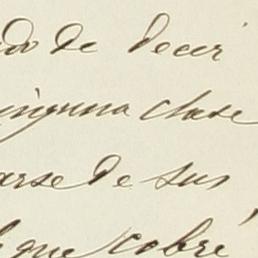 ado de decir
ninguna clase
arse de sus
que cobré